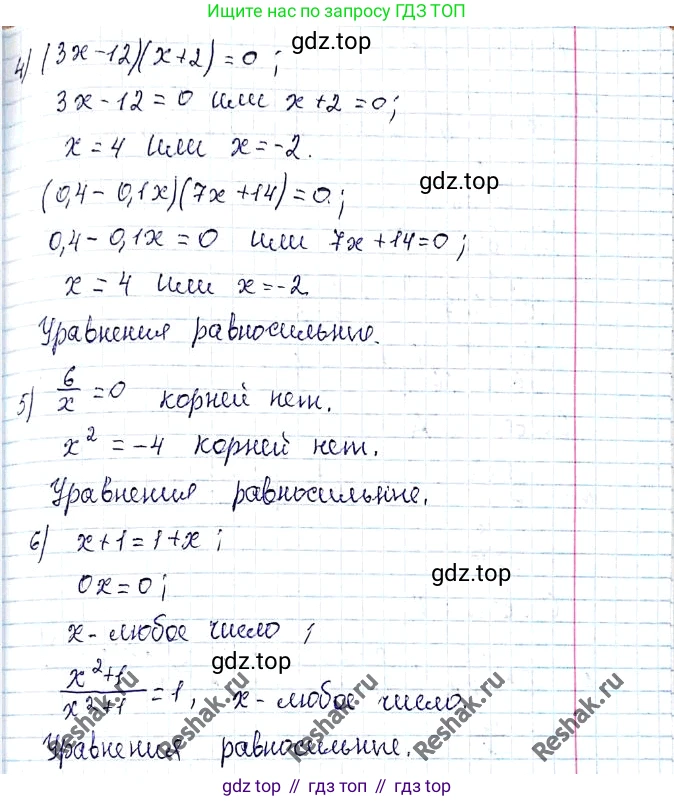 Ищите нас по запросу ГДЗ ТОП
4) (3x-12)(x+2)=0;
gdz.top
3x-12=0 или x+2=0;
x=4 или x=-2.
(0,4-0,1x)(7x+14)=0;
gdz.top
0,4-0,1x=0 или 7x+14=0;
x=4 или x=-2.
Уравнения равносильные.
5) 6/x=0 корней нет.
x²=-4 корней нет.
Уравнения равносильные.
6) x+1=1+x;
0x=0;
gdz.top
x-любое число;
gdz.top
x²+1/x²+1=1, x-любое число.
Reshak.ru
Reshak.ru
Reshak.ru
Reshak.ru
Reshak.ru
Уравнения равносильные.
gdz top // гдз топ // gdz top